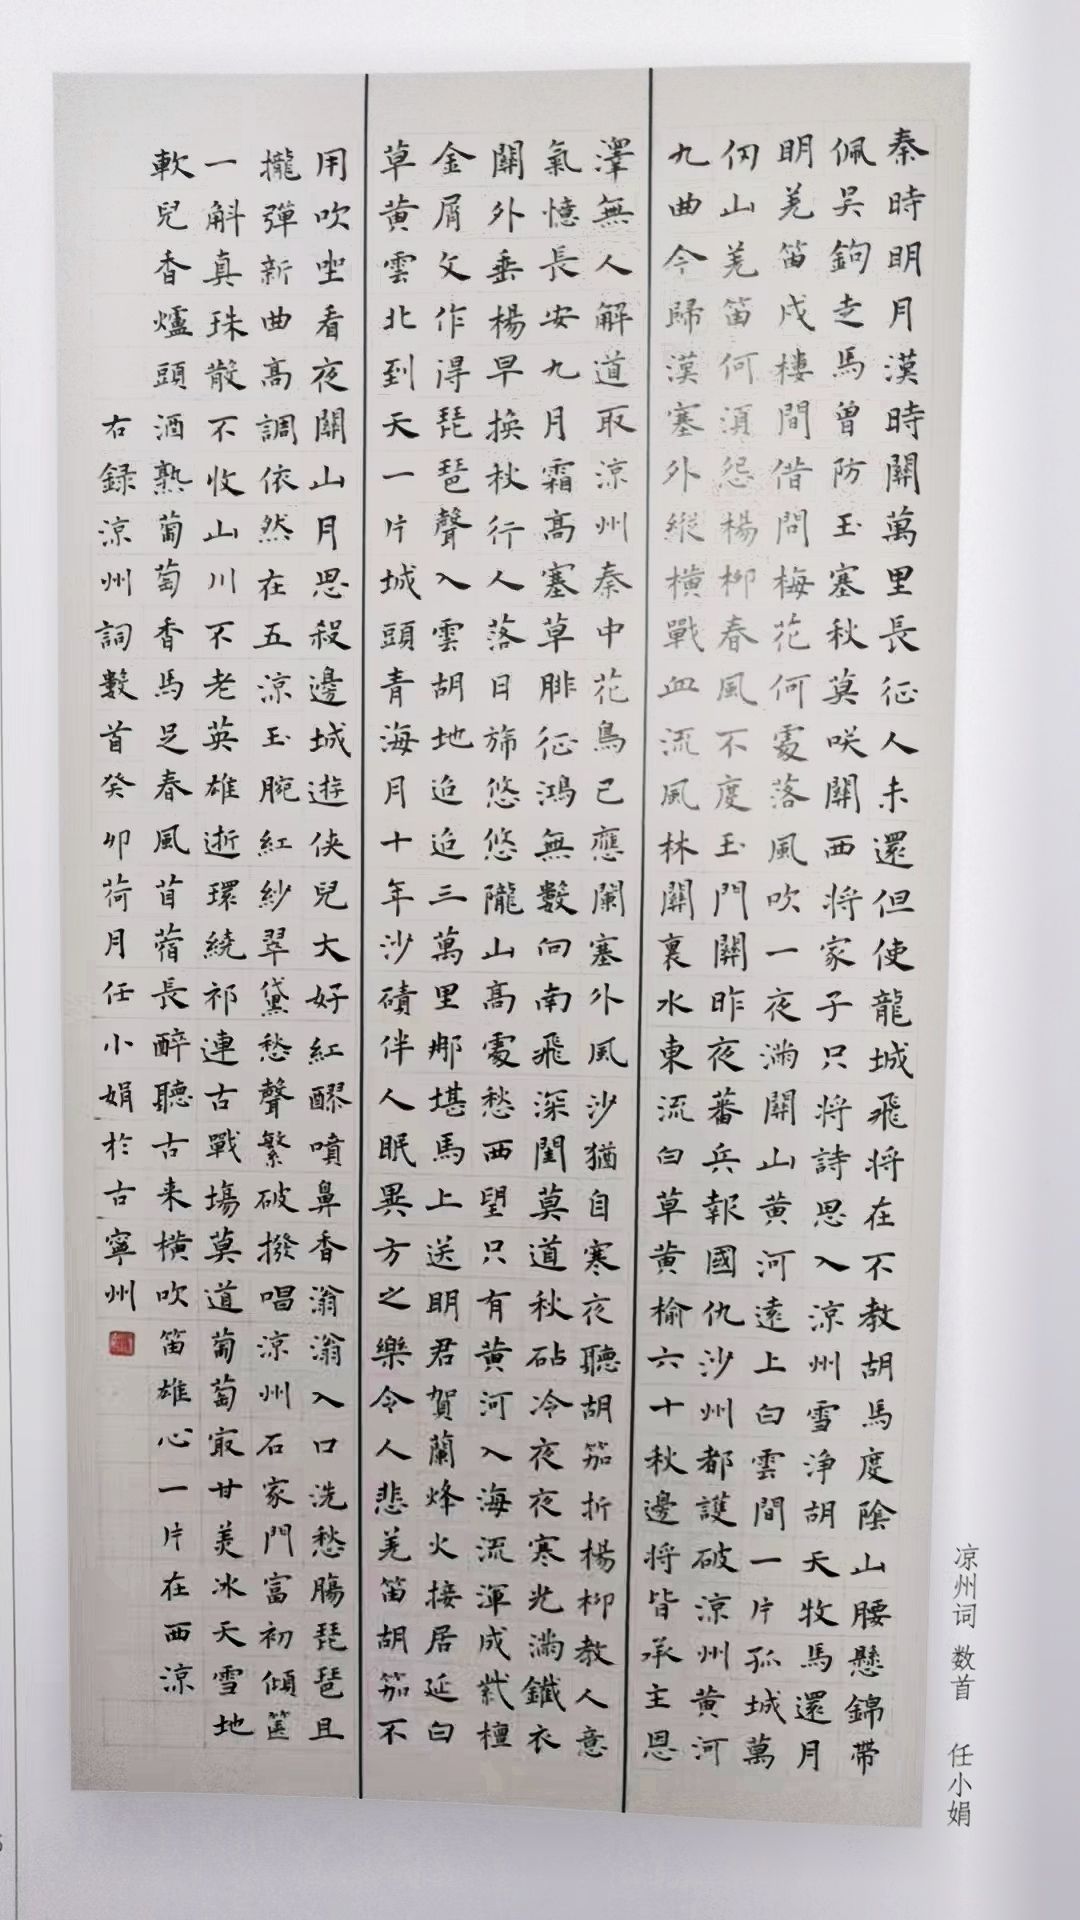 秦時明月漢時關萬里長征人未還但使龍城飛將在不教胡馬度陰山腰懸錦帶
佩吴鉤走馬曾防玉塞秋莫咲關西將家子只將詩思入涼州雪淨胡天牧馬還月
明羌笛戍樓間借問梅花何處落風吹一夜滿關山黄河遠上白雲間一片孤城萬
仞山羌笛何須怨楊柳春風不度玉門關昨夜蕃兵報國仇沙州都護破涼州黄河
九曲今歸漢塞外縱橫戰血流風林關裏水東流白草黄榆六十秋邊將皆承主恩
澤無人解道取涼州秦中花鳥已應闌塞外風沙猶自寒夜聽胡笳折楊柳教人意
氣憶長安九月霜高塞草腓征鴻無數向南飛深閨莫道秋砧冷夜夜寒光滿鐵衣
關外垂楊早換秋行人落日旆悠悠隴山高處愁西望只有黄河入海流渾成紫檀
金屑文作得琵琶聲入雲胡地迢迢三萬里那堪馬上送明君賀蘭烽火接居延白
草黄雲北到天一片城頭青海月十年沙磧伴人眠異方之樂令人悲羌笛胡笳不
用吹坐看夜關山月思殺邊城遊俠兒大好紅醪噴鼻香滃滃入口洗愁腸琵琶且
攏彈新曲高調依然在五涼玉腕紅紗翠黛愁聲繁破撥唱涼州石家門富初傾篋
一斛真珠散不收山川不老英雄逝環繞祁連古戰場莫道葡萄最甘美冰天雪地
軟兒香爐頭酒熟葡萄香馬足春風苜蓿長醉聽古来横吹笛雄心一片在西涼
右録涼州詞數首癸卯荷月任小娟於古寧州
凉州词 数首 任小娟